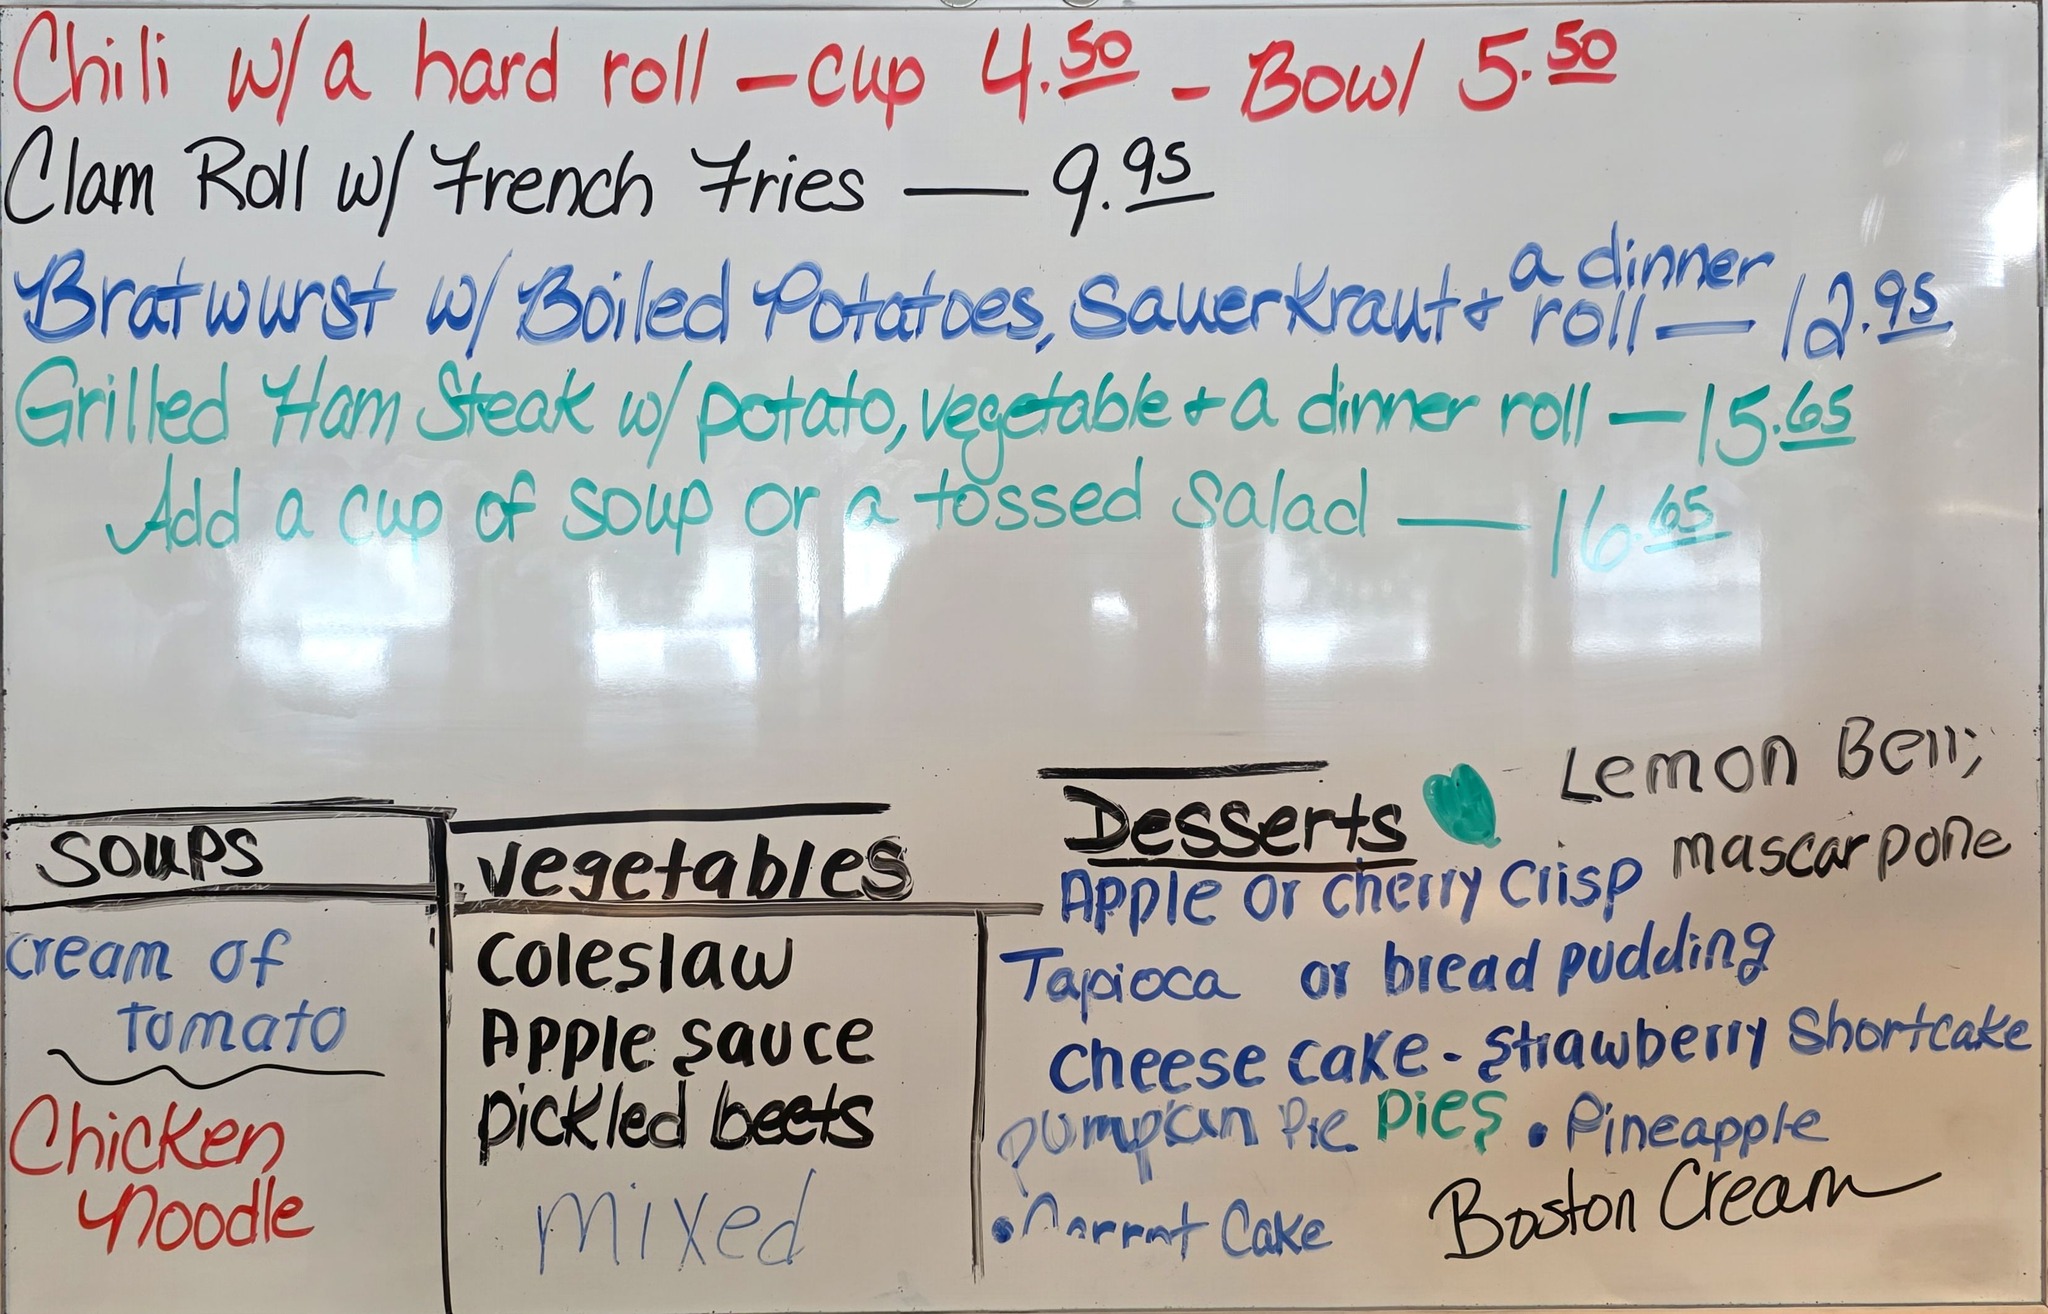 Chili w/ a hard roll - cup 4.50 - Bowl 5.50
Clam Roll w/ French Fries — 9.95
Bratwurst w/ Boiled Potatoes, Sauerkraut + a dinner roll — 12.95
Grilled Ham Steak w/ potato, vegetable + a dinner roll — 15.65
Add a cup of soup or a tossed salad — 16.65
Soups
cream of
Tomato
Chicken
Noodle
vegetables
Coleslaw
Apple sauce
pickled beets
mixed
Desserts
Lemon
mascarpone
Apple or cherry crisp
Tapioca or bread pudding
cheese cake - strawberry shortcake
pumpkin Pie Pies • Pineapple
• Carrot Cake
Boston Cream